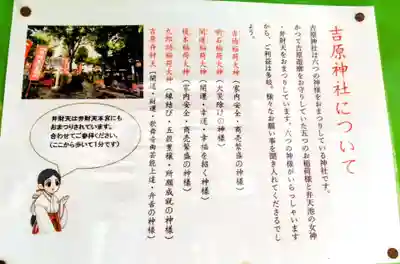 吉原神社について
吉原神社は六つの神様をおまつりしている神社です。
かつて吉原遊廓をお守りしていた五つのお稲荷様と弁天池の女神
・弁財天をおまつりしています。六つの神様がいらっしゃいます
から、ご利益は多岐。様々なお願い事を聞き入れてくださるでし
ょう。
吉徳稲荷大神（家内安全・商売繁盛の神様）
明石稲荷大神（火災除けの神様）
開運稲荷大神（開運・幸運・幸福を招く神様）
榎本稲荷大神（家内安全・商売繁盛の神様）
九郎助稲荷大神（縁結び・五穀豊穣・所願成就の神様）
吉原弁財天（開運・財運・歌舞音曲芸能上達・弁舌の神様）
弁財天は弁財天本宮にも
おまつりされています。
合わせてご参拝ください。
（ここから歩いて１分です）